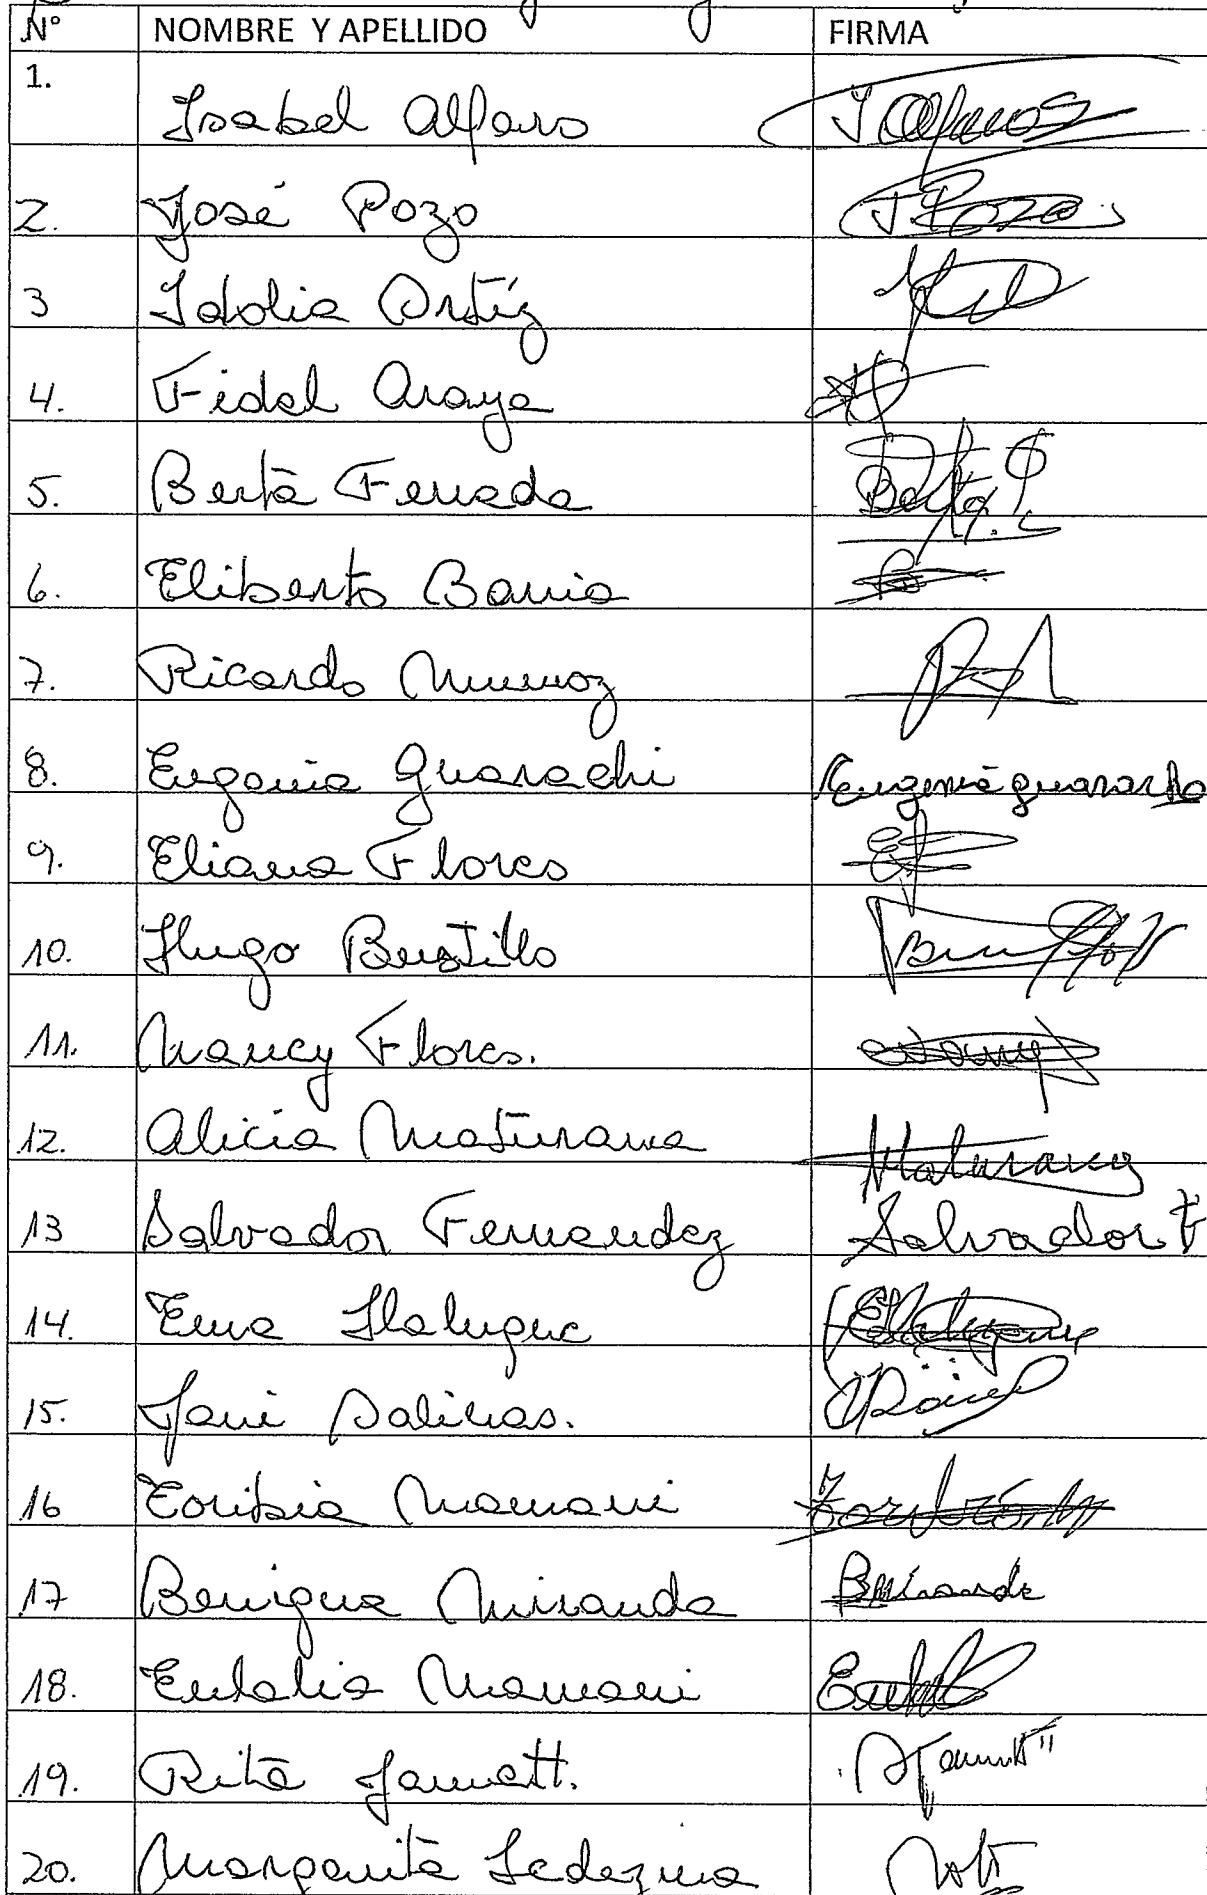 N° NOMBRE Y APELLIDO FIRMA
1. Isabel Alfaro
2. José Pozo
3 Idolia Ortíz
4. Fidel Araya
5. Berta Ferrada Berta
6. Eliberto Barria
7. Ricardo Munnoz
8. Eugenia Guarachi Eugenia guarachi
9. Eliana Flores
10. Hugo Bustillo
11. Nancy Flores.
12. Alicia Maturana Maturana
13 Salvador Fernandez Salvador F
14. Ema Haluque
15. Jani Salinas.
16 Toribia Mamani
17 Benigna Miranda BMiranda
18. Eulalia Mamani
19. Rita Jamett.
20. Margarita Ledezma